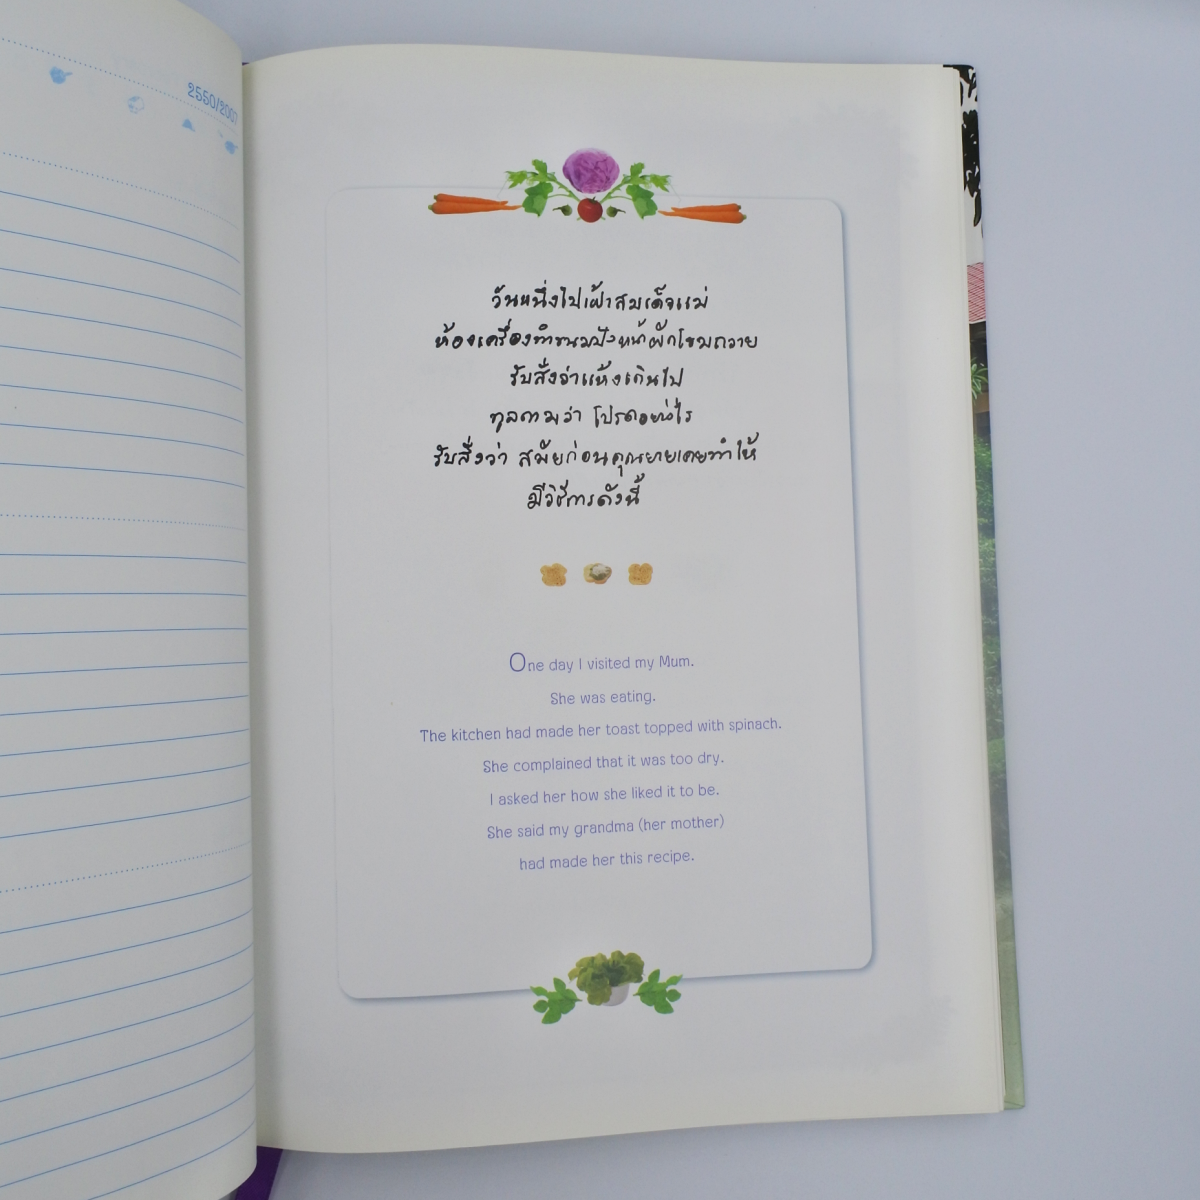 2550/2007
วันหนึ่งไปเฝ้าสมเด็จแม่
ห้องเครื่องทำขนมปังหน้าผักโขมถวาย
รับสั่งว่าแห้งเกินไป
ทูลถามว่า โปรดอย่างไร
รับสั่งว่า สมัยก่อนคุณยายเคยทำให้
มีวิธีการดังนี้
One day I visited my Mum.
She was eating.
The kitchen had made her toast topped with spinach.
She complained that it was too dry.
I asked her how she liked it to be.
She said my grandma (her mother)
had made her this recipe.